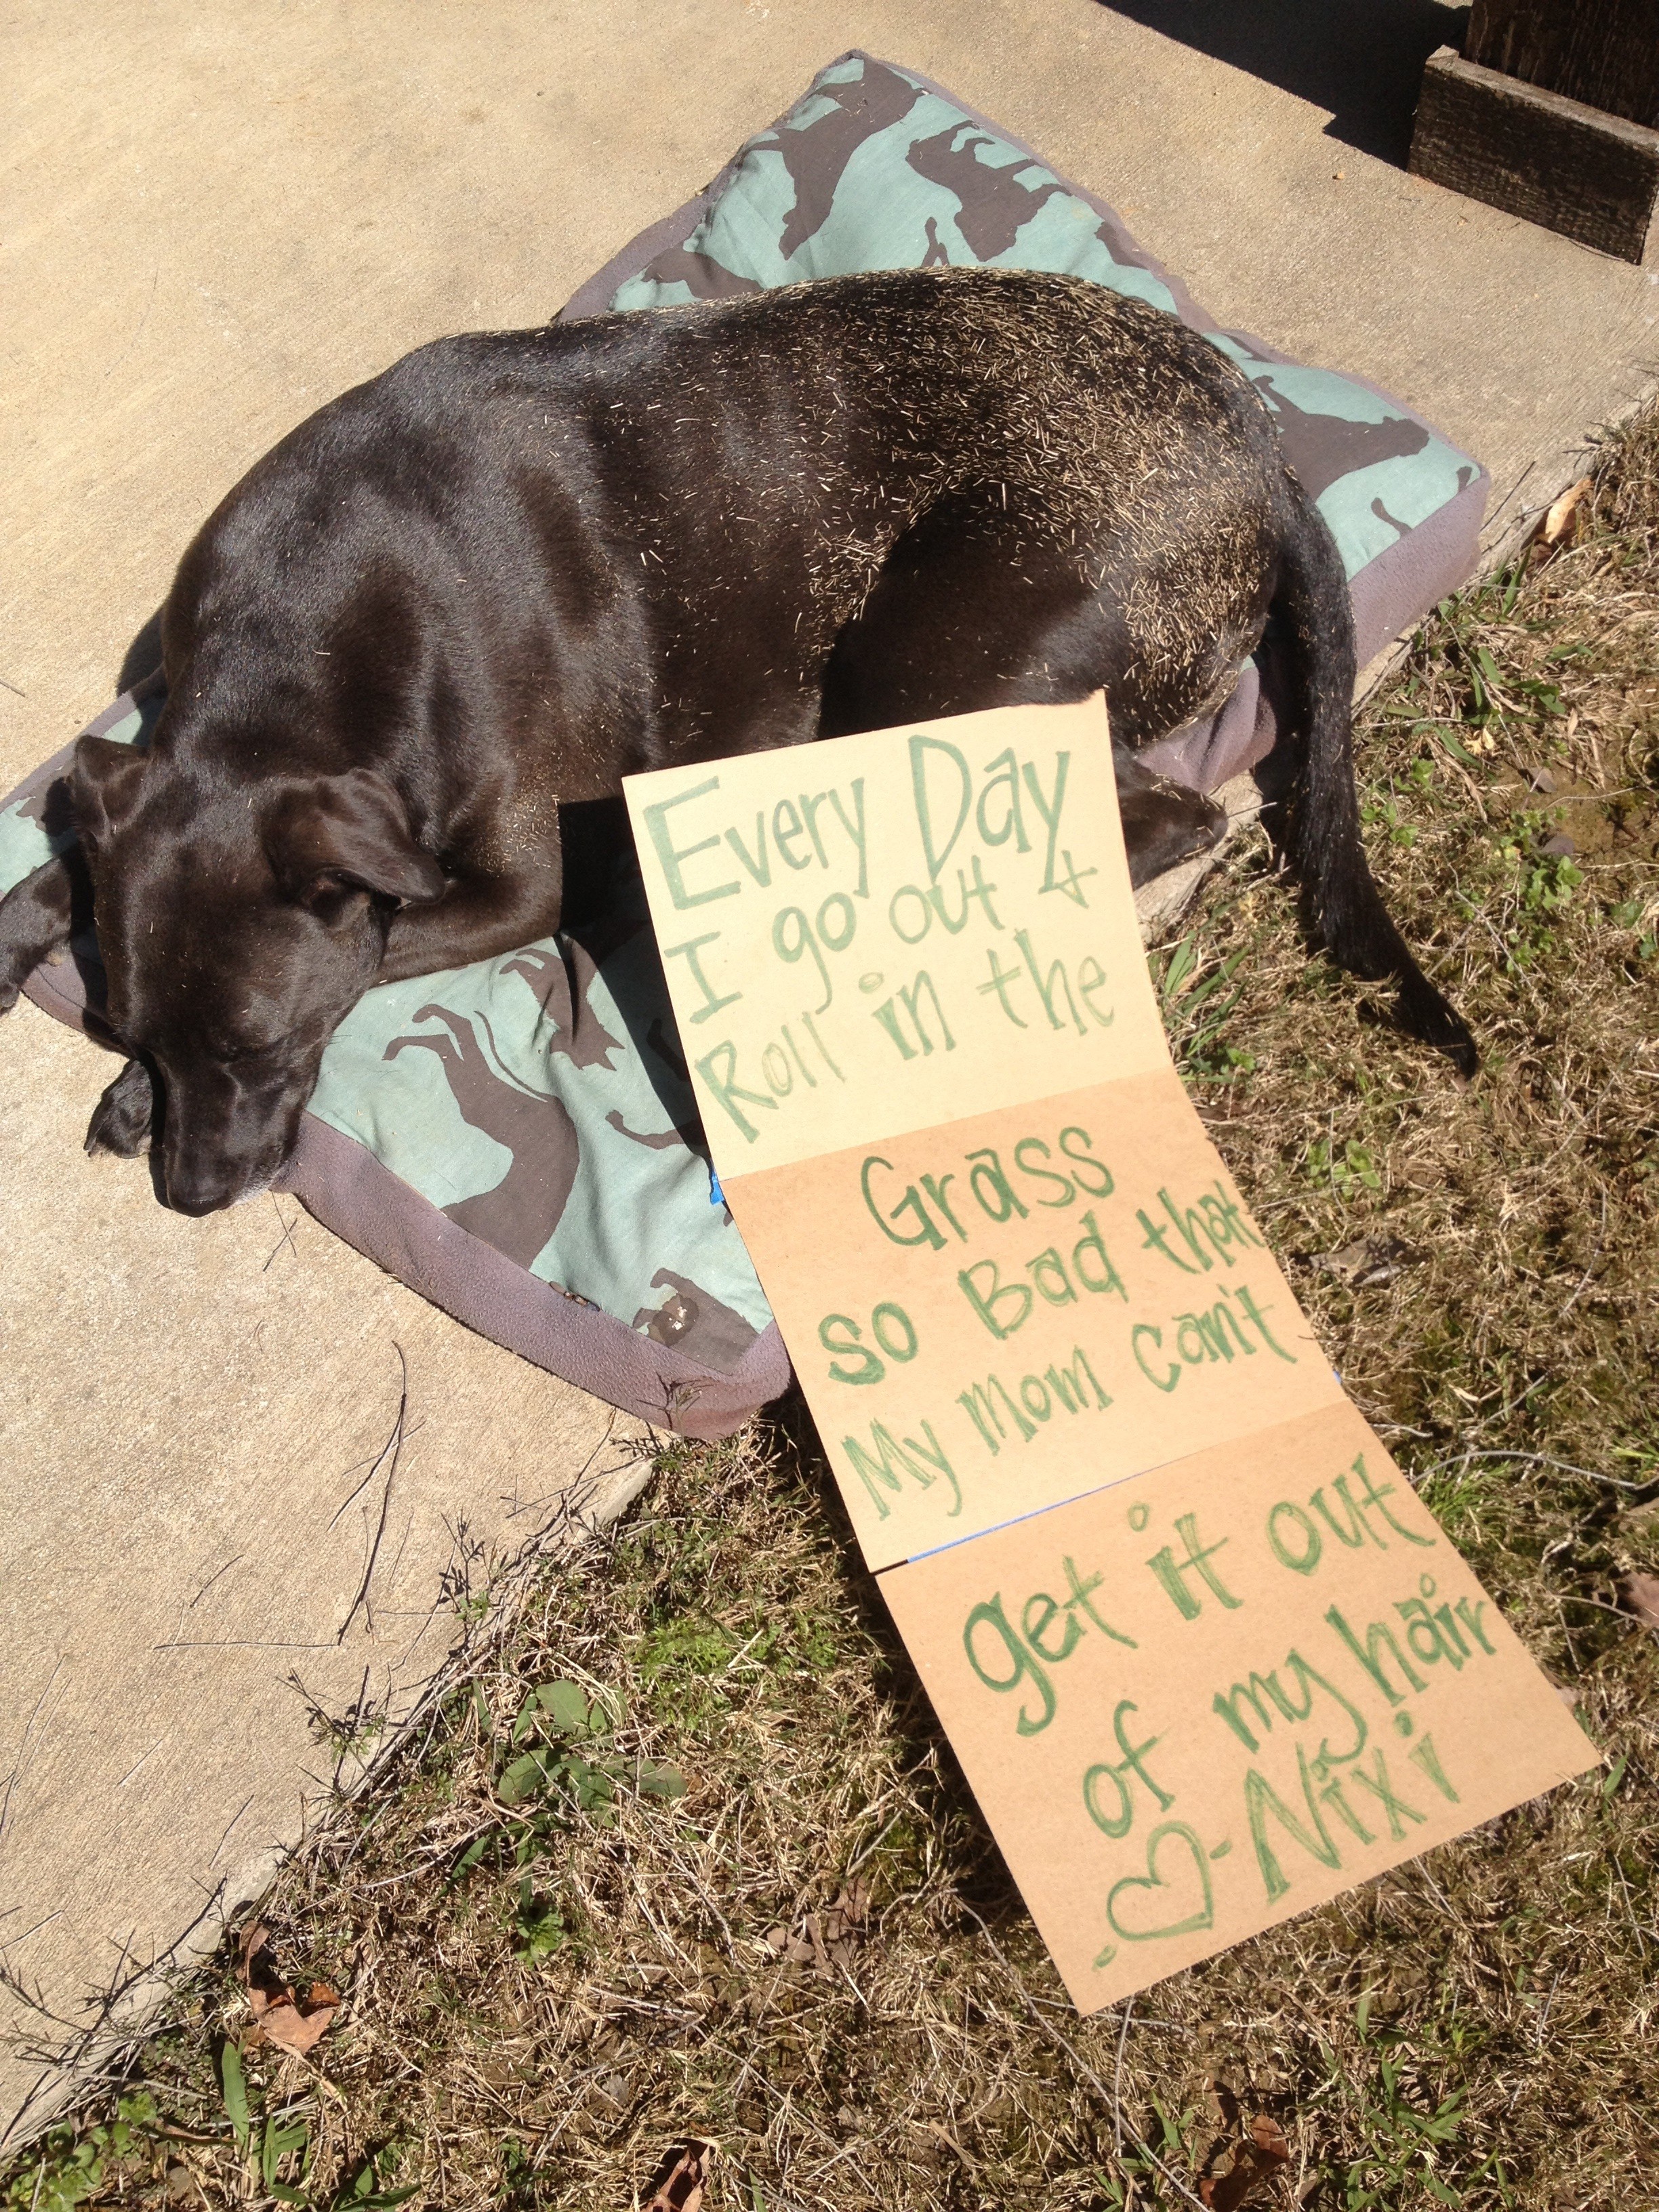 Every Day
I go out +
Roll in the
Grass
so Bad that
My Mom can't
get it out
of my hair
♡-Nixi